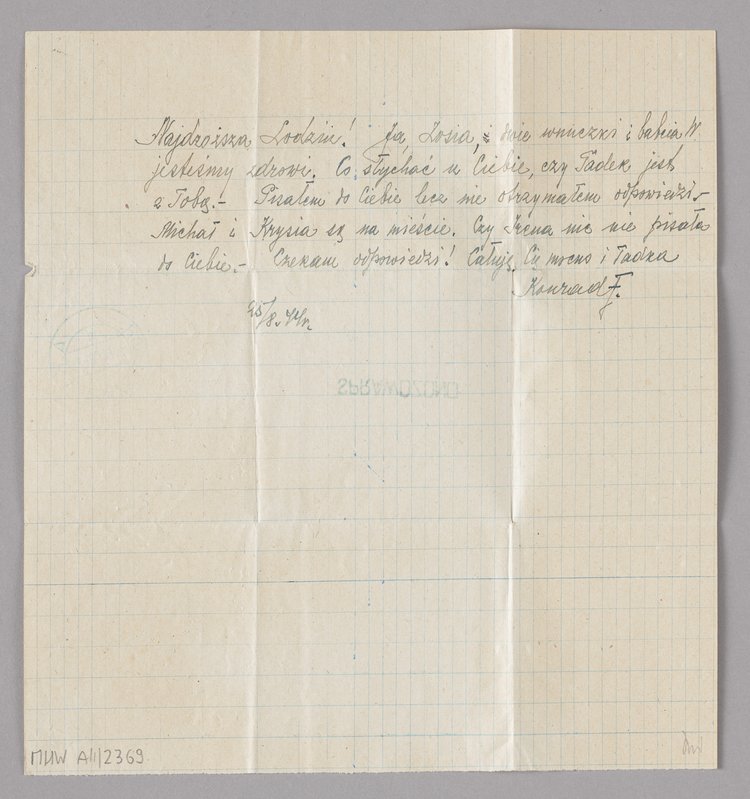 Najdroższa Lodziu! Ja, Zosia, i dwie wnuczki i babcia W
jesteśmy zdrowi. Co słychać u Ciebie, czy Tadek jest
z Tobą.- Pisałem do Ciebie lecz nie otrzymałem odpowiedzi.-
Michał i Krysia są na mieście. Czy Irena nic nie pisała
do Ciebie.- Czekam odpowiedzi! Całuję Cię mocno i Tadka
Konrad F.
25/8.44r.
SPRAWDZONO
MHW A/II/2369